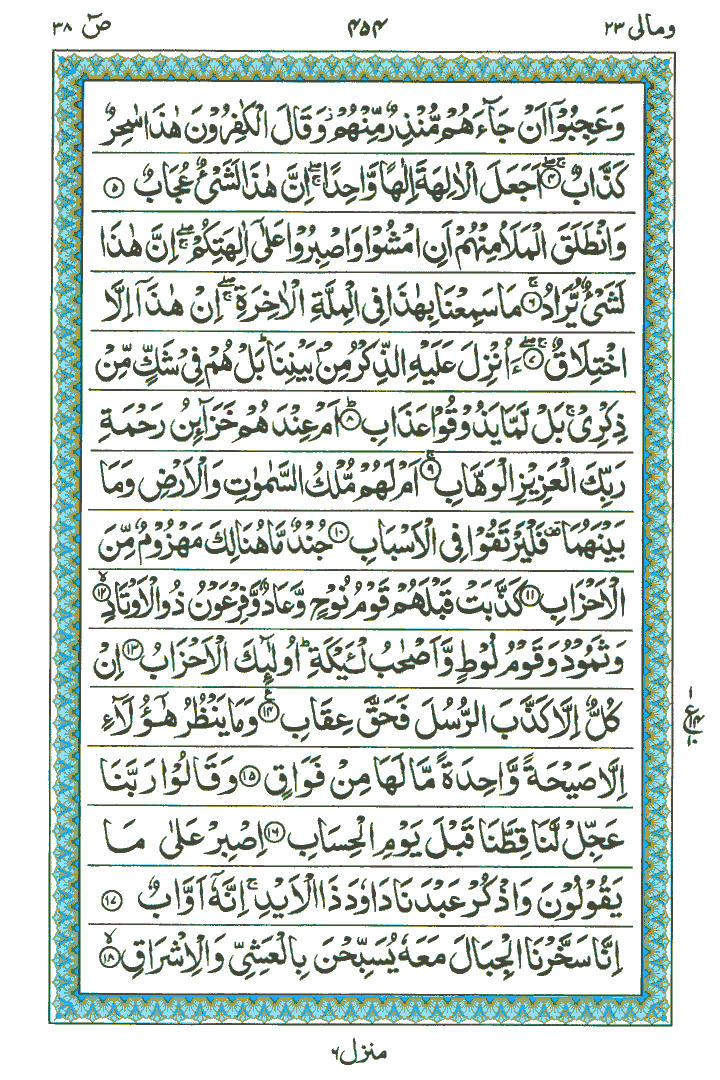 ومالی ۲۳
۴۵۴
صٓ ۳۸
وَعَجِبُوْۤا اَنْ جَآءَهُمْ مُّنْذِرٌ مِّنْهُمْ ؗ وَقَالَ الْكٰفِرُوْنَ هٰذَا سٰحِرٌ
كَذَّابٌ ۖۚ ۴ اَجَعَلَ الْاٰلِهَةَ اِلٰهًا وَّاحِدًا ۖۚ اِنَّ هٰذَا لَشَیْءٌ عُجَابٌ ۵
وَانْطَلَقَ الْمَلَاُ مِنْهُمْ اَنِ امْشُوْا وَاصْبِرُوْا عَلٰۤی اٰلِهَتِكُمْ ۖۚ اِنَّ هٰذَا
لَشَیْءٌ یُّرَادُ ۚ ۶ مَا سَمِعْنَا بِهٰذَا فِی الْمِلَّةِ الْاٰخِرَةِ ۖۚ اِنْ هٰذَاۤ اِلَّا
اخْتِلَاقٌ ۖۚ ۷ ءَاُنْزِلَ عَلَیْهِ الذِّكْرُ مِنْۢ بَیْنِنَا ؕ بَلْ هُمْ فِیْ شَكٍّ مِّنْ
ذِكْرِیْ ۚ بَلْ لَّمَّا یَذُوْقُوْا عَذَابِ ؕ ۸ اَمْ عِنْدَهُمْ خَزَآئِنُ رَحْمَةِ
رَبِّكَ الْعَزِیْزِ الْوَهَّابِ ۚ ۹ اَمْ لَهُمْ مُّلْكُ السَّمٰوٰتِ وَالْاَرْضِ وَمَا
بَیْنَهُمَا ۫ فَلْیَرْتَقُوْا فِی الْاَسْبَابِ ۱۰ جُنْدٌ مَّا هُنَالِكَ مَهْزُوْمٌ مِّنَ
الْاَحْزَابِ ۱۱ كَذَّبَتْ قَبْلَهُمْ قَوْمُ نُوْحٍ وَّعَادٌ وَّفِرْعَوْنُ ذُو الْاَوْتَادِ ۙ ۱۲
وَثَمُوْدُ وَقَوْمُ لُوْطٍ وَّاَصْحٰبُ لْـَٔیْكَةِ ؕ اُولٰٓئِكَ الْاَحْزَابُ ۱۳ اِنْ
كُلٌّ اِلَّا كَذَّبَ الرُّسُلَ فَحَقَّ عِقَابِ ۠ ۱۴ وَمَا یَنْظُرُ هٰۤؤُلَآءِ
اِلَّا صَیْحَةً وَّاحِدَةً مَّا لَهَا مِنْ فَوَاقٍ ۱۵ وَقَالُوْا رَبَّنَا
عَجِّلْ لَّنَا قِطَّنَا قَبْلَ یَوْمِ الْحِسَابِ ۱۶ اِصْبِرْ عَلٰی مَا
یَقُوْلُوْنَ وَاذْكُرْ عَبْدَنَا دَاوٗدَ ذَا الْاَیْدِ ۚ اِنَّهٗۤ اَوَّابٌ ۱۷
اِنَّا سَخَّرْنَا الْجِبَالَ مَعَهٗ یُسَبِّحْنَ بِالْعَشِیِّ وَالْاِشْرَاقِ ۙ ۱۸
منزل ۶